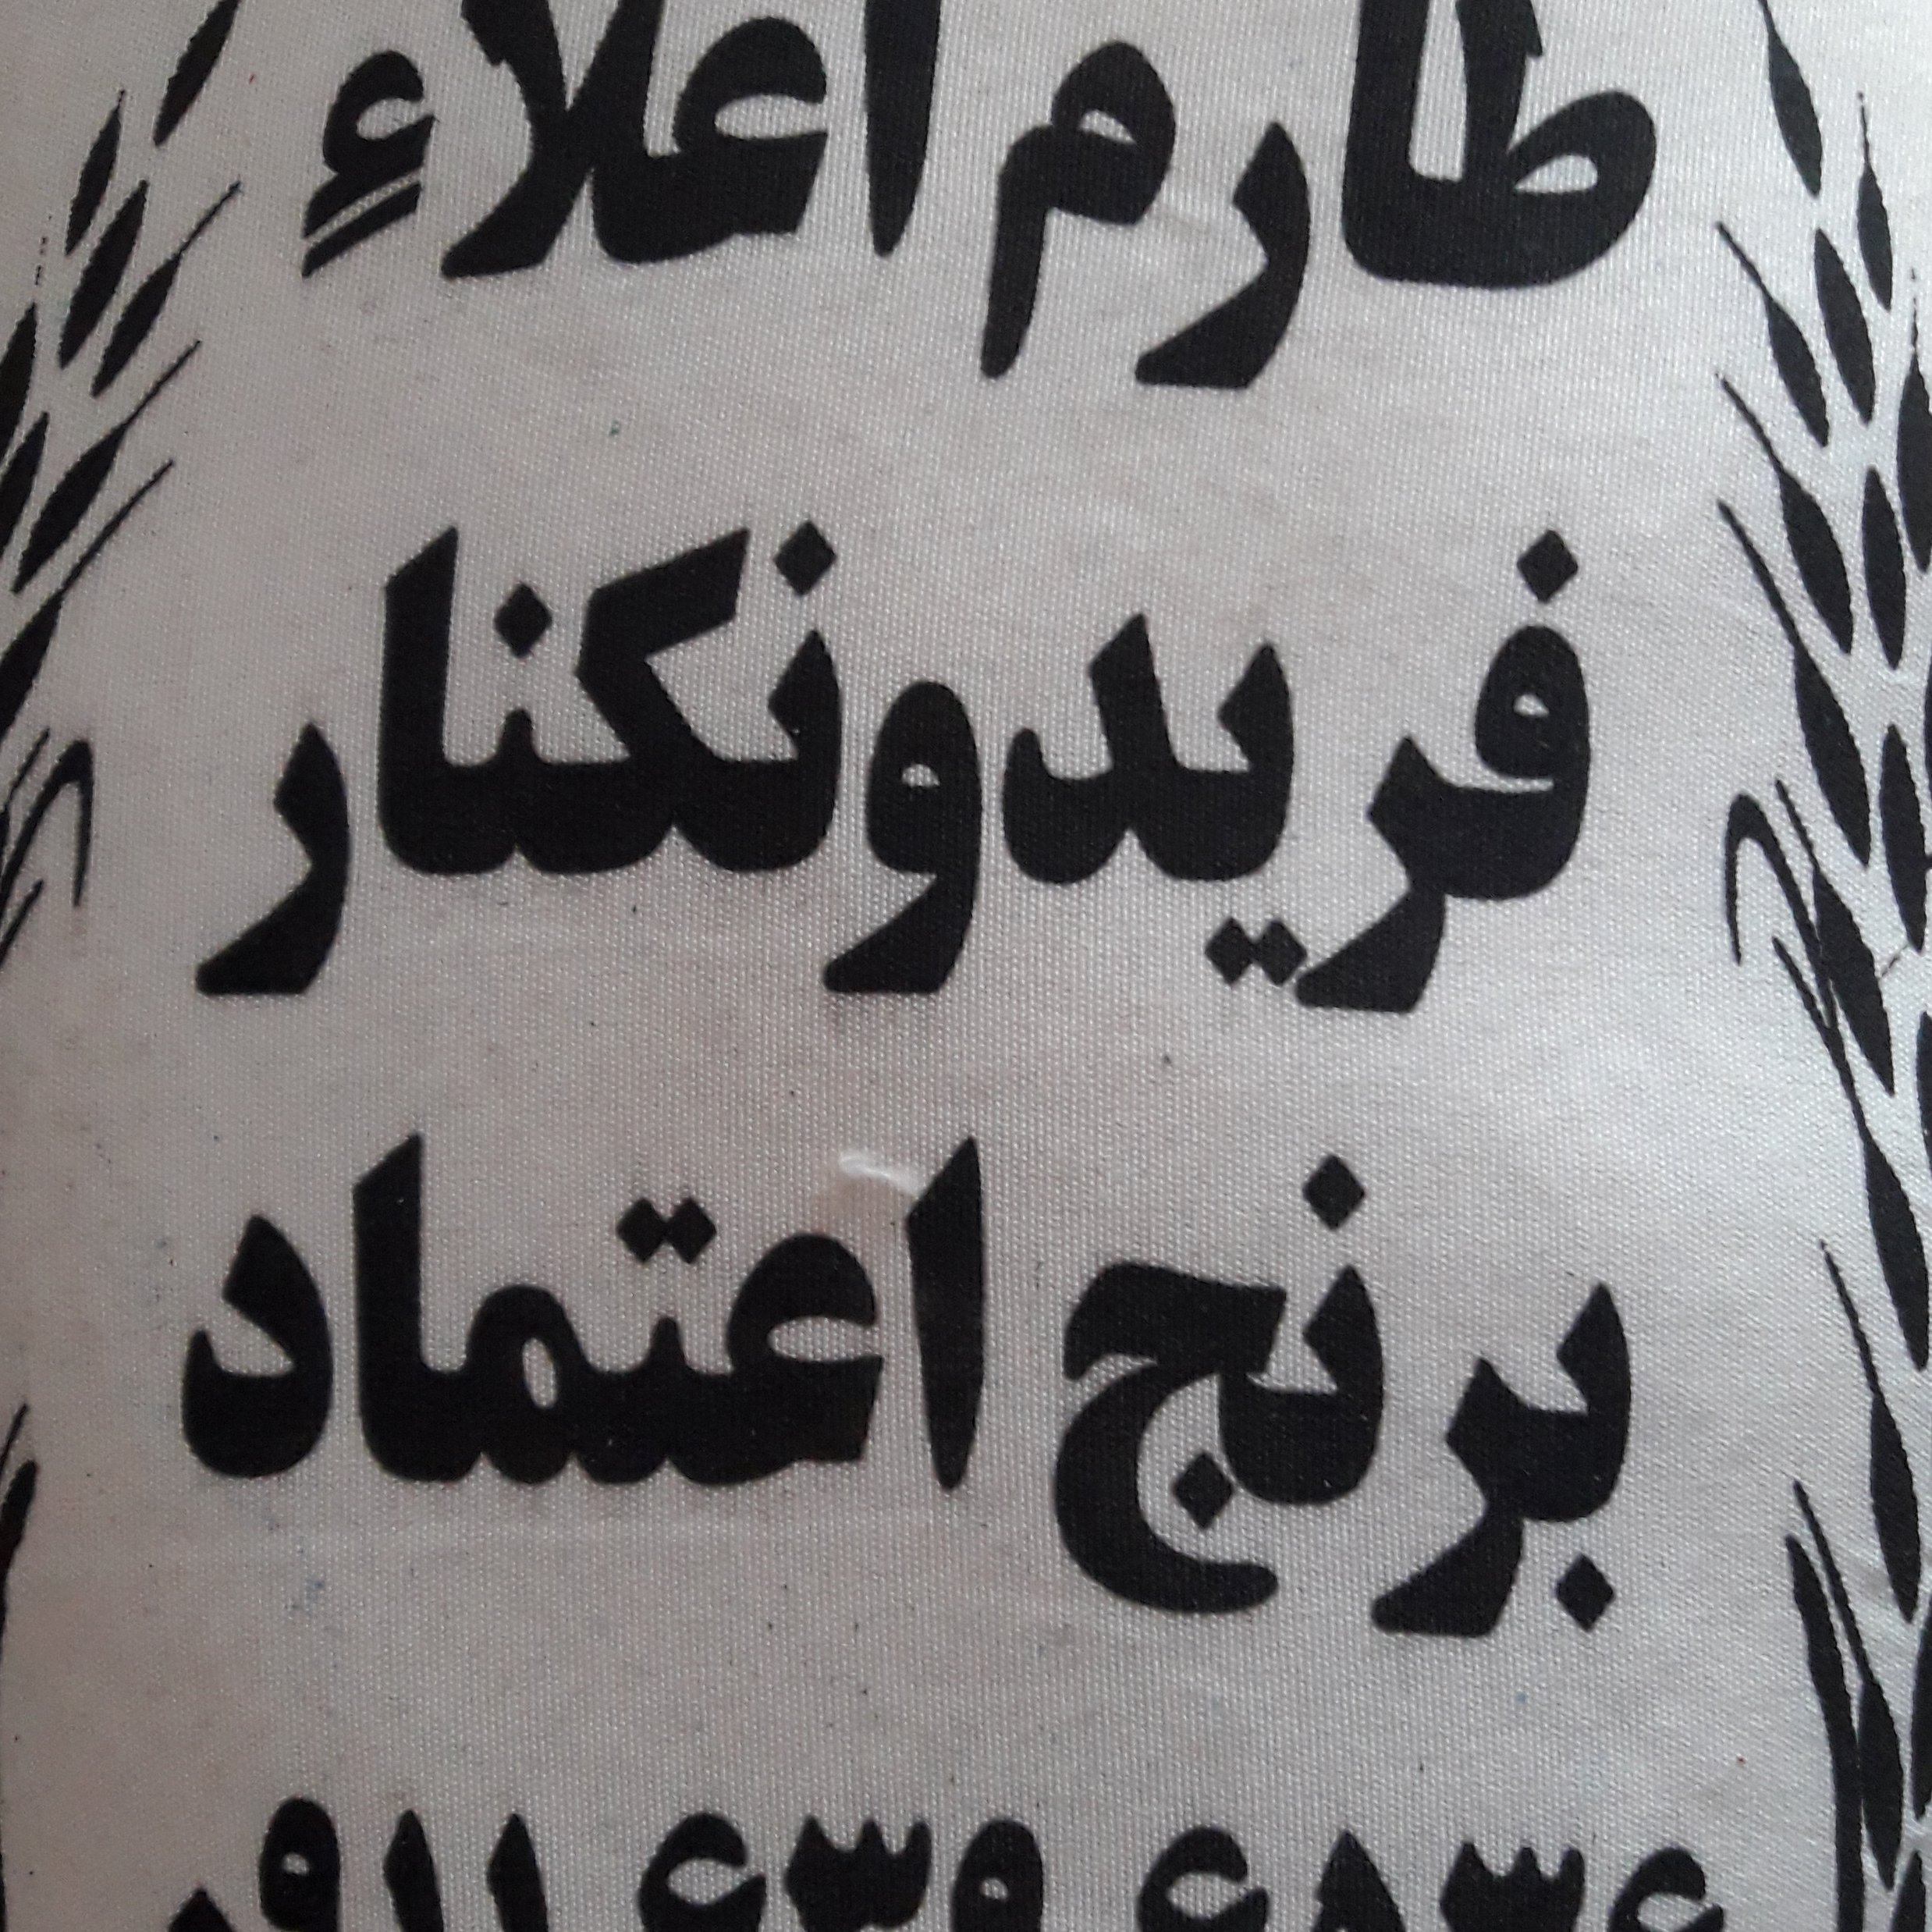 طارم اعلاءِ
فریدونکنار
برنج اعتماد
۰۹۱۱ ۶۳۹ ۶۸۳۶